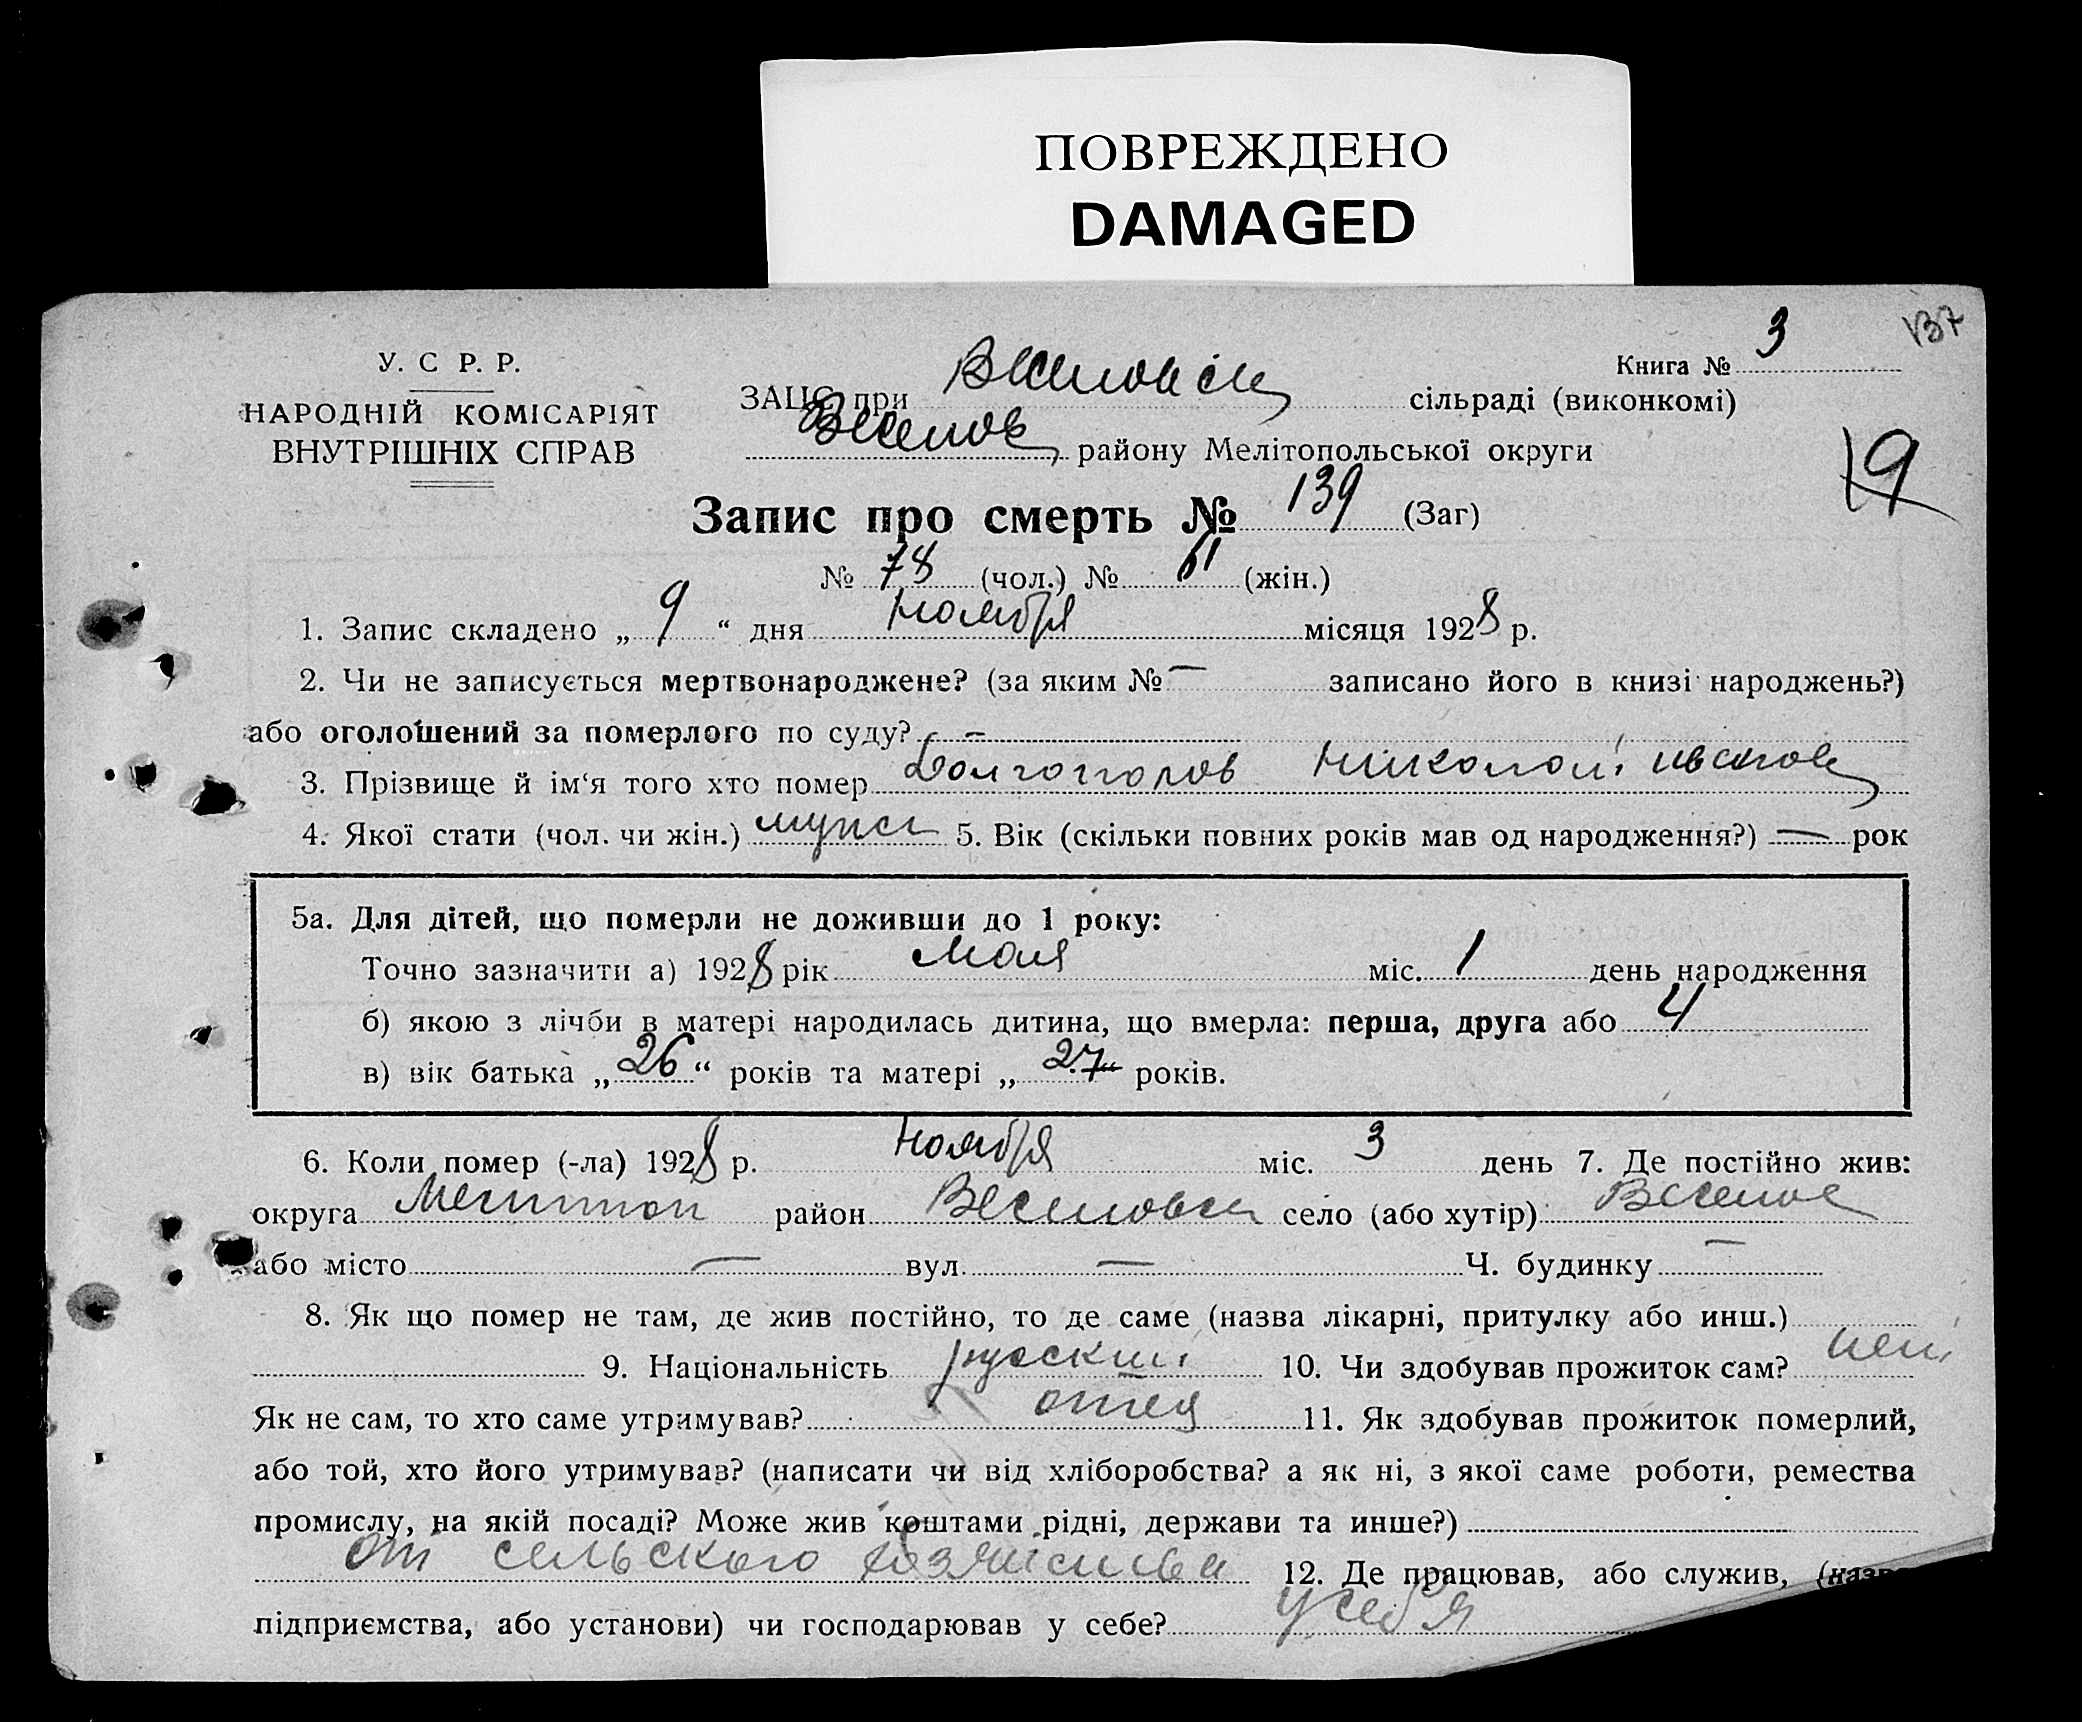 ПОВРЕЖДЕНО
DAMAGED
137
Книга № 3
У. С Р. Р.
НАРОДНІЙ КОМІСАРІЯТ
ВНУТРІШНІХ СПРАВ
ЗАЦС при Веселовск сільраді (виконкомі)
Веселов району Мелітопольської округи
19
Запис про смерть № 139 (Заг)
№ 78 (чол.) № 61 (жін.)
1. Запис складено „ 9 “ дня ноября місяця 1928 р.
2. Чи не записується мертвонароджене? (за яким № — записано його в книзі народжень?)
або оголошений за померлого по суду? —
3. Прізвище й ім‘я того хто помер Николай Иванов
4. Якої стати (чол. чи жін.) мужск 5. Вік (скільки повних років мав од народження?) — рок
5а. Для дітей, що померли не доживши до 1 року:
Точно зазначити а) 1928 рік Мая міс. 1 день народження
б) якою з лічби в матері народилась дитина, що вмерла: перша, друга або 4
в) вік батька „ 26 “ років та матері „ 27 “ років.
6. Коли помер (-ла) 1928 р. ноября міс. 3 день 7. Де постійно жив:
округа Мелитоп район Веселовск село (або хутір) Веселое
або місто — вул. — Ч. будинку —
8. Як що помер не там, де жив постійно, то де саме (назва лікарні, притулку або инш.)
9. Національність русский 10. Чи здобував прожиток сам? нет
Як не сам, то хто саме утримував? отец 11. Як здобував прожиток померлий,
або той, хто його утримував? (написати чи від хліборобства? а як ні, з якої саме роботи, ремества
промислу, на якій посаді? Може жив коштами рідні, держави та инше?)
от сельского хозяйства 12. Де працював, або служив, (назва
підприємства, або установи) чи господарював у себе? у себя